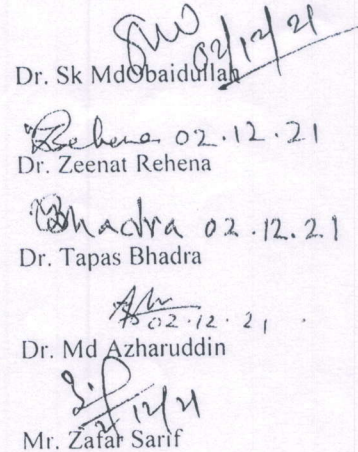 02/12/21
Dr. Sk MdObaidullah
Rehena 02.12.21
Dr. Zeenat Rehena
Bhadra 02.12.21
Dr. Tapas Bhadra
02.12.21
Dr. Md Azharuddin
2/12/21
Mr. Zafar Sarif